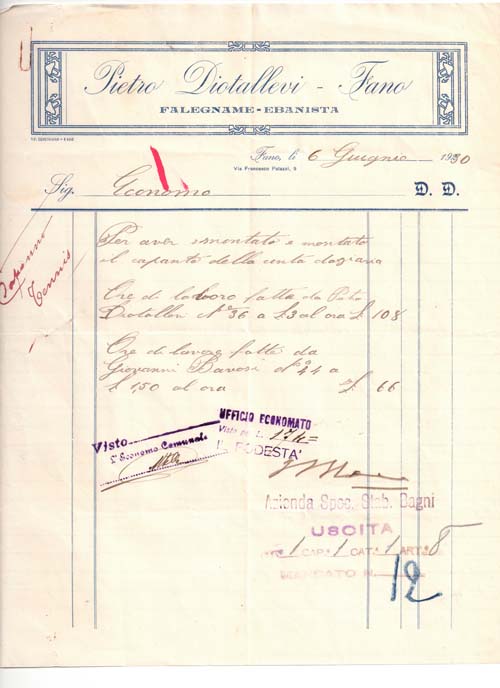 Pietro Diotallevi - Fano
FALEGNAME-EBANISTA
Fano, li 6 Giugnio 1930
Via Francesco Palazzi, 9
Sig. Economo D. D.
Per aver smontato e montato
il capanto della cinta dazaria
Capanno
Tennis
Ore di lavoro fatte da Pietro
Diotallevi N° 36 a £3 al ora £ 108
Ore di lavoro fatte da
Giovanni N° 44 a
£ 1,50 al ora £ 66
UFFICIO ECONOMATO
Visto per L. 174=
Visto
L'Economo Comunale
IL PODESTA'
Azienda Spec. Stab. Bagni
USCITA
1 CAP. 1 CAT. 1 ART. 8
MANDATO N. 12